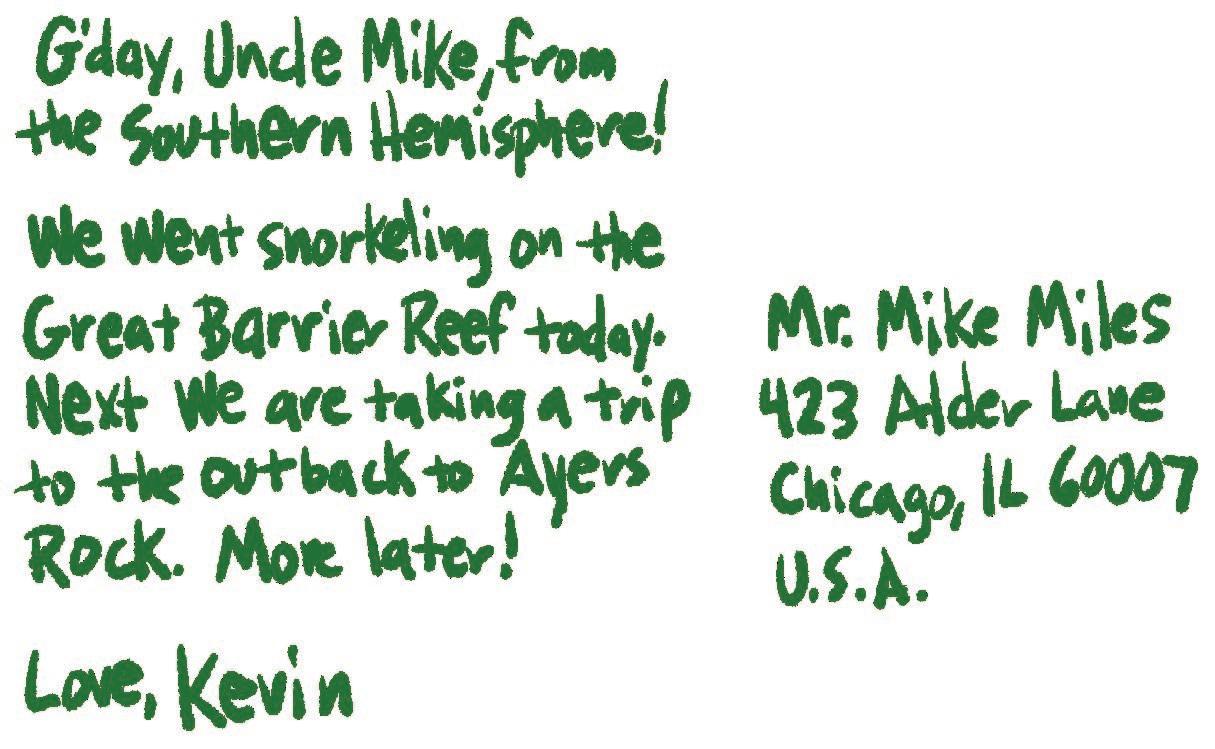 G'day, Uncle Mike, from
the Southern Hemisphere!
We went snorkeling on the
Great Barrier Reef today.
Next we are taking a trip
to the outback to Ayers
Rock. More later!
Love, Kevin
Mr. Mike Miles
423 Alder Lane
Chicago, IL 60007
U.S.A.